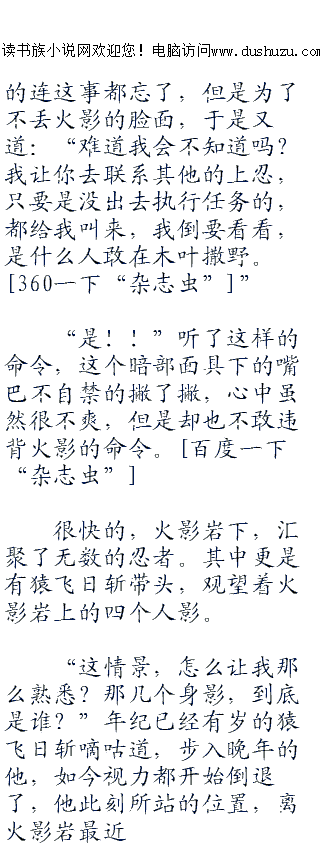 读书族小说网欢迎您！电脑访问www.dushuzu.com
的连这事都忘了，但是为了
不丢火影的脸面，于是又
道：“难道我会不知道吗？
我让你去联系其他的上忍，
只要是没出去执行任务的，
都给我叫来，我倒要看看，
是什么人敢在木叶撒野。
[360一下“杂志虫”]”
“是！！”听了这样的
命令，这个暗部面具下的嘴
巴不自禁的撇了撇，心中虽
然很不爽，但是却也不敢违
背火影的命令。[百度一下
“杂志虫”]
很快的，火影岩下，汇
聚了无数的忍者。其中更是
有猿飞日斩带头，观望着火
影岩上的四个人影。
“这情景，怎么让我那
么熟悉？那几个身影，到底
是谁？”年纪已经有岁的猿
飞日斩嘀咕道，步入晚年的
他，如今视力都开始倒退
了，他此刻所站的位置，离
火影岩最近